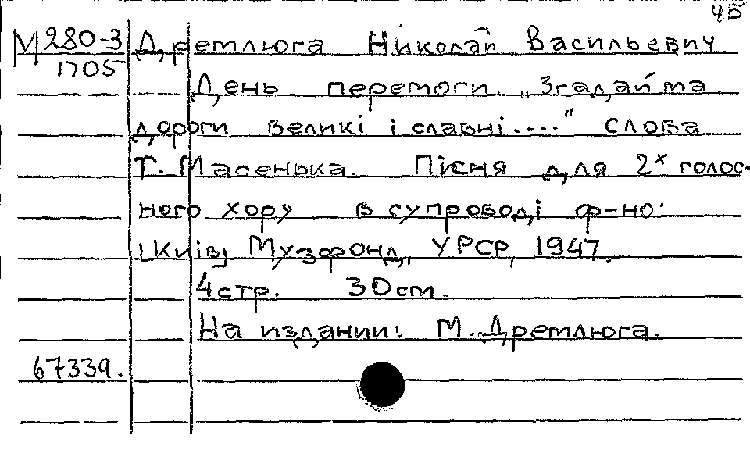 ЧБ
М 280-3 Дремлюга Николай Васильевич
1705
День перемоги „Згадайма
дороги великі і славні....” слова
Т. Масенька. Пісня для 2х голос-
ного хору в супроводі ф-но.
[Київ] Музфонд, УРСР, 1947.
4 стр. 30 cm.
На издании: М. Дремлюга.
67339.